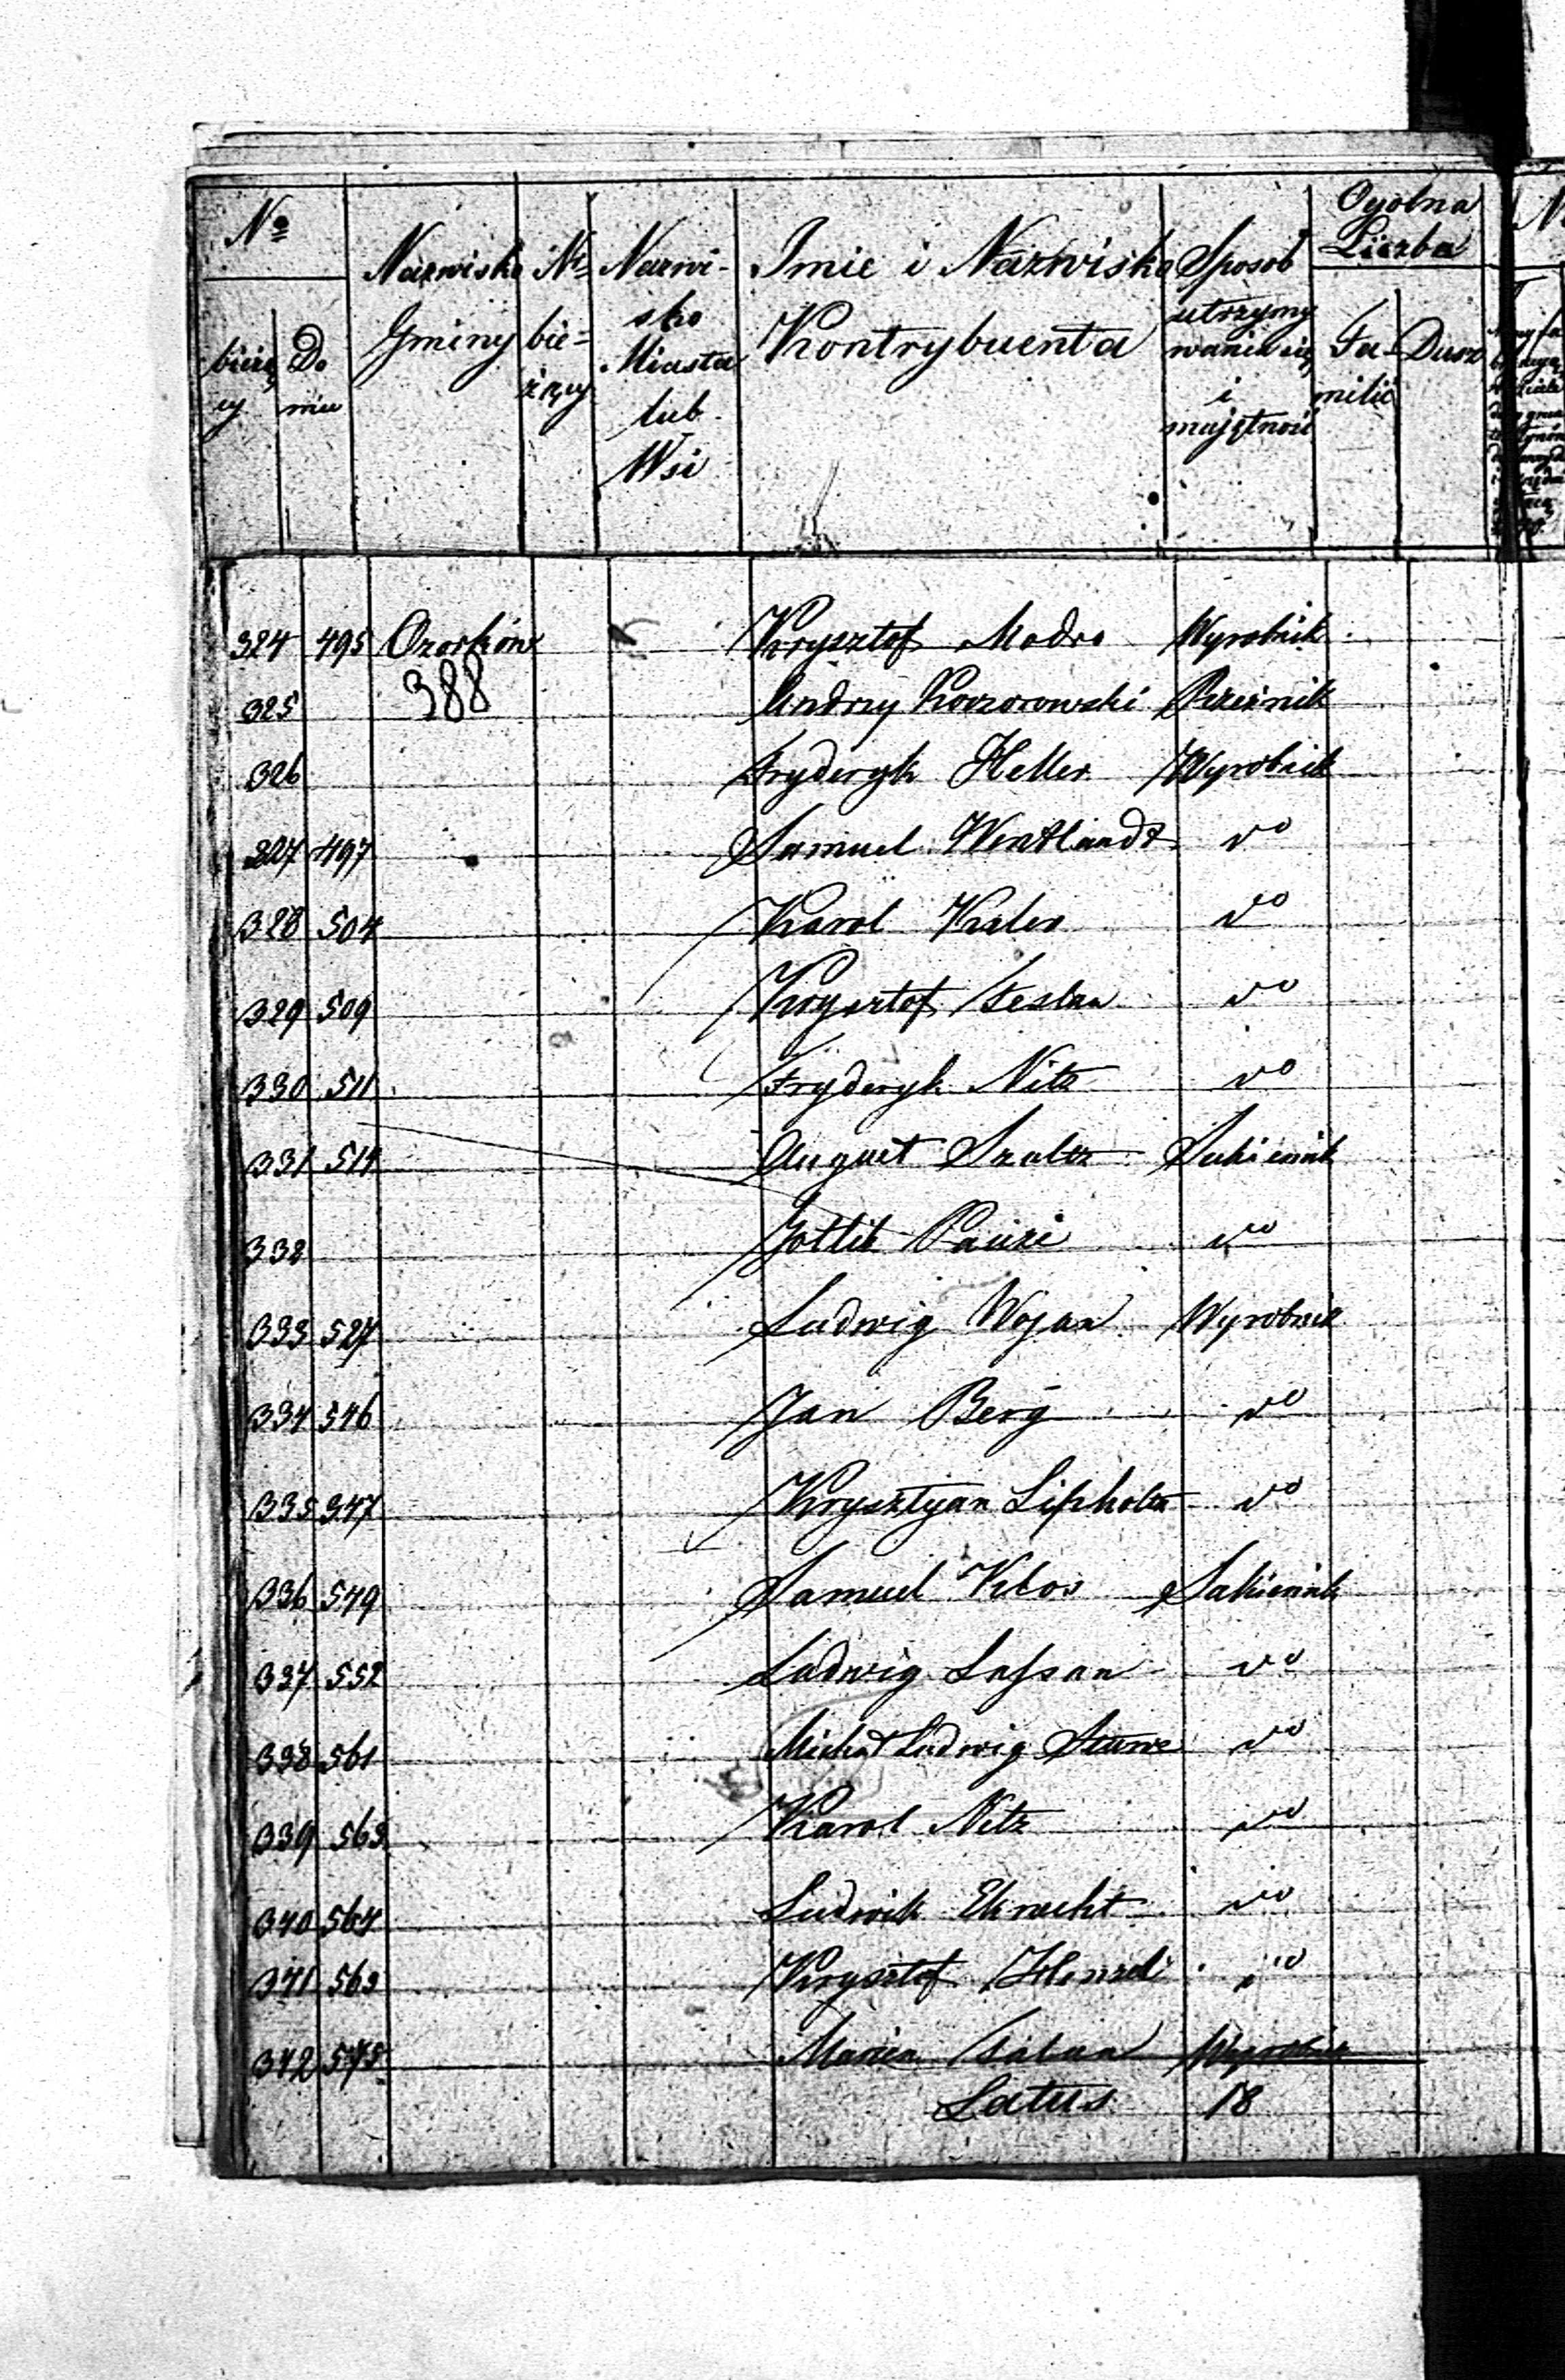 Nº
bieżą
cy
Do
mu
Nazwisko
Gminy
Nr
bie=
żący
Nazwi-
sko
Miasta
lub
Wsi
Imie i Nazwisko
Kontrybuenta
Sposob
utrzymy
wania się
i
majętność
Ogolna
Liczba
Fa-
milii
Dusz
324 495 Ozorków Krysztof Modro Wyrobnik
388
325 Andrzy Koczorowski Rzeźnik
326 Fryderyk Heller Wyrobnik
327 497 Samuel Wentlandt do
328 504 Karol Kisler do
329 509 Krysztof do
330 511 Fryderyk Nitz do
331 514 August Szultz Sukiennik
332 Gotlib do
333 527 Ludwig Wojan Wyrobnik
334 546 Jan Berg do
335 547 Krysztyan Lipholtz do
336 549 Samuel Klos Sukiennik
337 552 Ludwig do
338 561 Michał Ludwig Sturve do
339 563 Karol Nitz do
340 564 Ludwik Eknecht do
341 565 Krysztof do
342 575 Wyrobnik
Latus 18